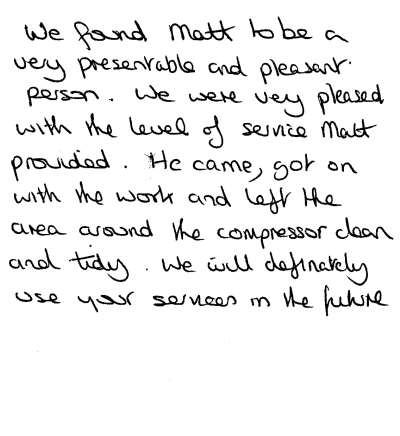 We found Matt to be a
very presentable and pleasant
person. We were very pleased
with the level of service Matt
provided. He came, got on
with the work and left the
area around the compressor clean
and tidy. We will definately
use your services in the future